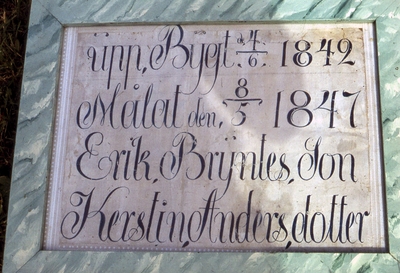 üpp, Bygt 4/6. 1842
Målat den, 8/5 1847
Erik, Bryntes, Son
Kerstin, Anders, dotter